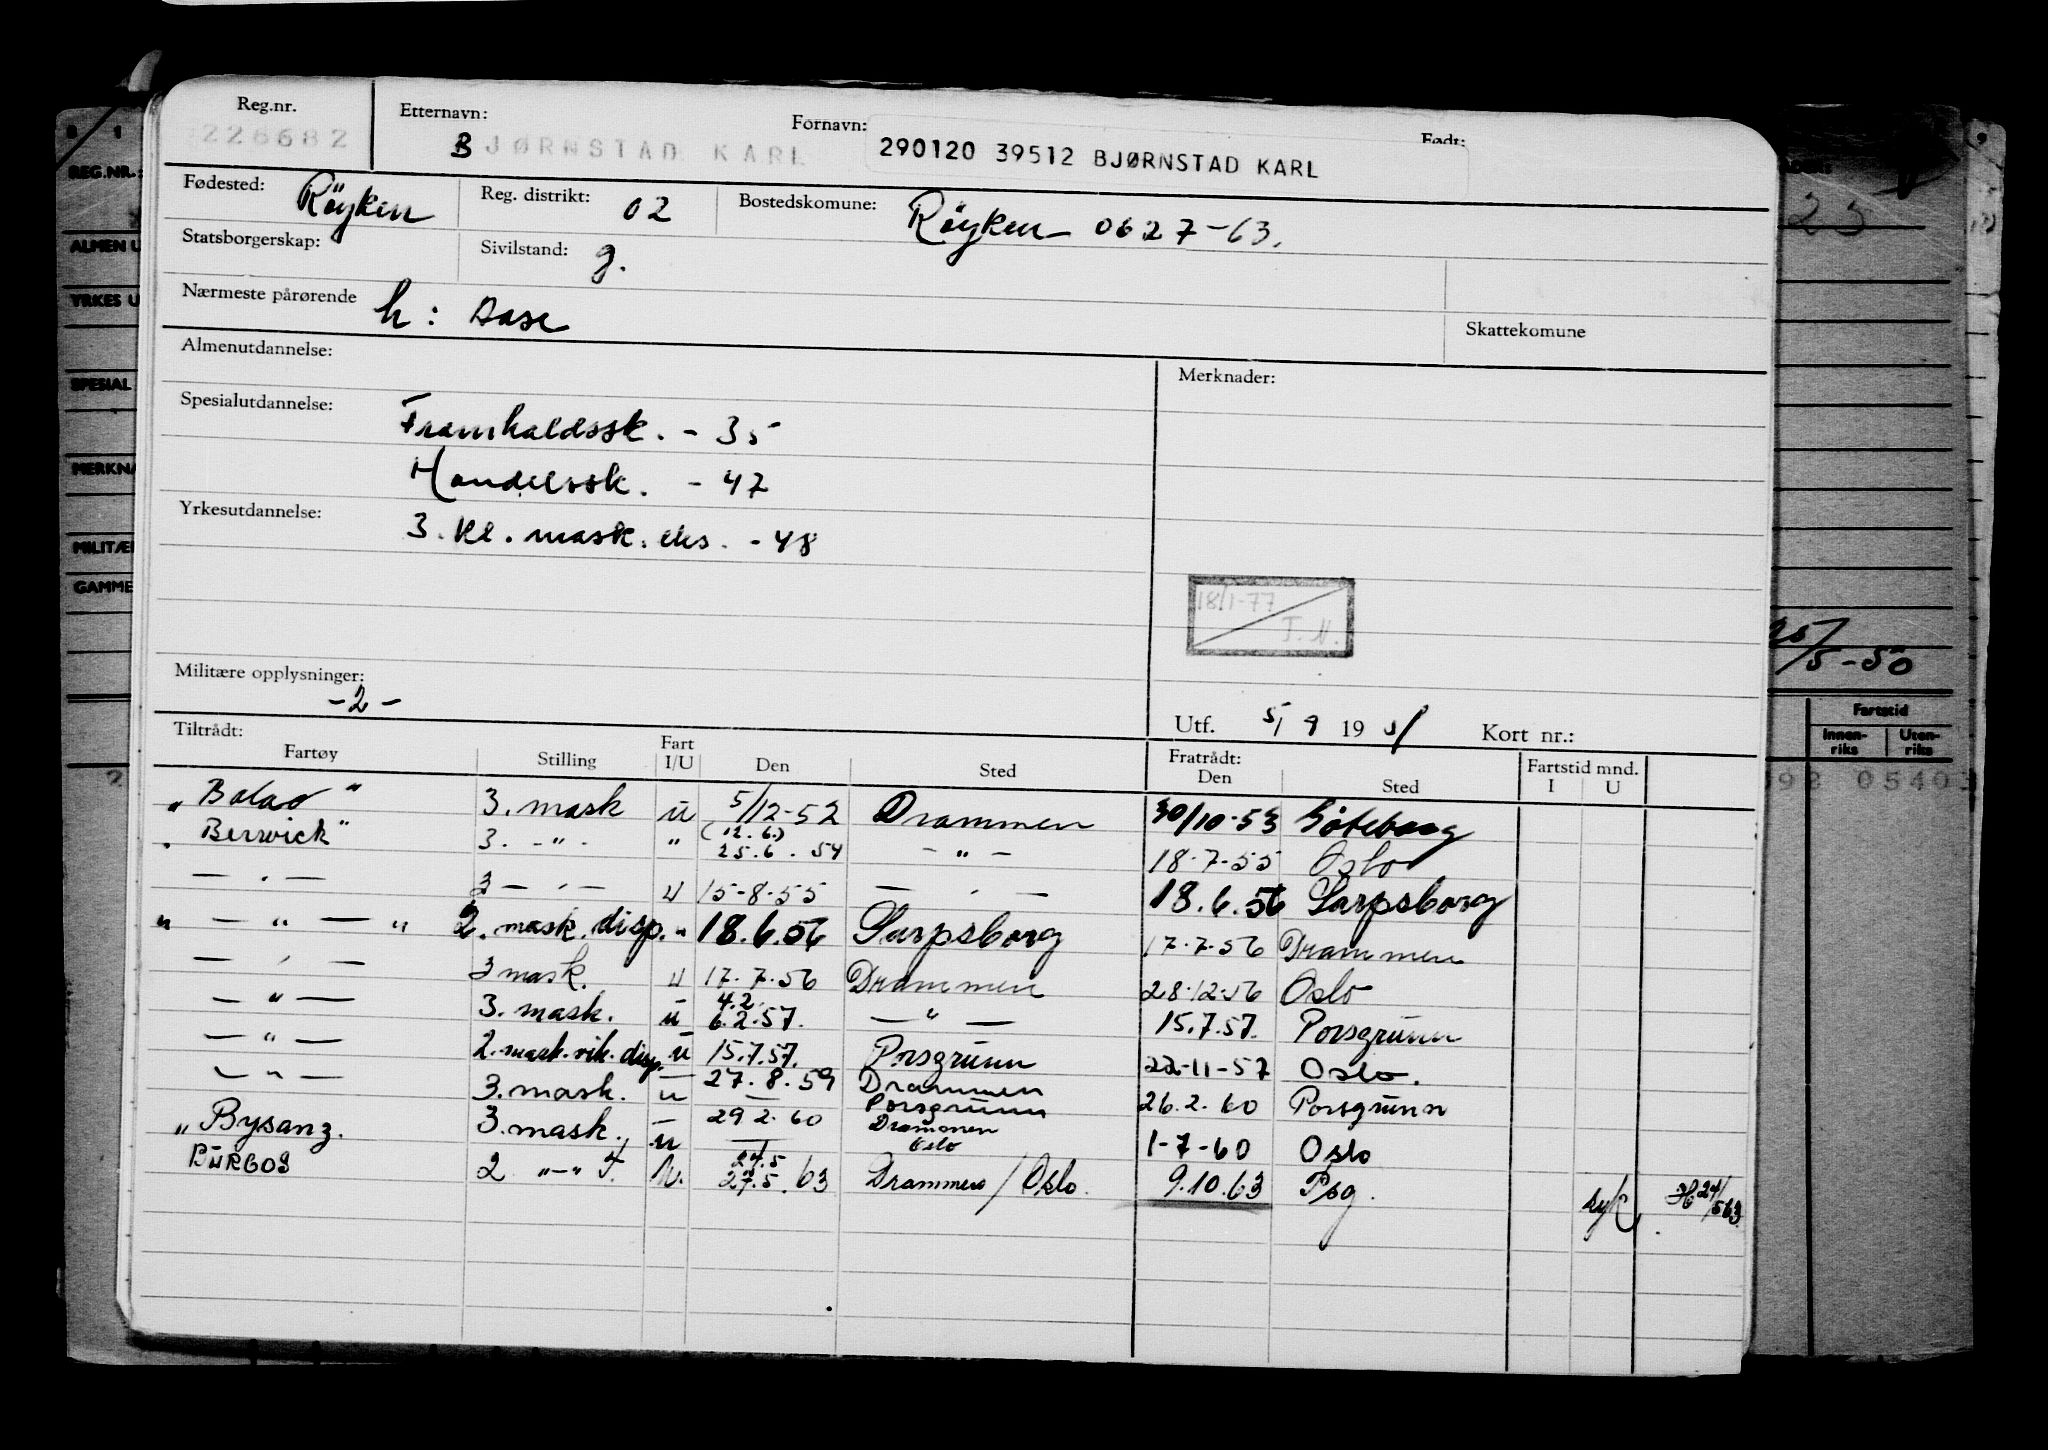 Reg.nr. Etternavn: Fornavn: Født:
226682 BJØRNSTAD KARL 290120 39512 BJØRNSTAD KARL
Fødested: Röyken Reg. distrikt: 02 Bostedskomune: Röyken 0627-63.
Statsborgerskap: Sivilstand: g.
Nærmeste pårørende h: Aase
Skattekomune
Almenutdannelse: Merknader:
Spesialutdannelse: Framhaldssk. - 35
Handelssk. - 47
Yrkesutdannelse: 3. kl. mask. eks. - 48
18/1-77
T. N.
Militære opplysninger:
-2-
Utf. 5/9 1951 Kort nr.:
Tiltrådt: Fratrådt: Fartstid mnd.
Fartøy Stilling Fart I/U Den Sted Den Sted I U
"Balao" 3. mask u 5/12-52 Drammen 30/10-53 Göteborg
" Berwick" 3. -"- " (12.6.) 25.6.54 -"- 18-7-55 Oslo
-"- 3 -"- u 15-8-55 -"- 18.6.56 Sarpsborg
" -"- " 2. mask. disp. " 18.6.56 Sarpsborg 17-7-56 Drammen
-"- 3 mask. u 17.7.56 Drammen 28-12-56 Oslo
-"- 3. mask. u 4.2 6.2.57. -"- 15.7.57. Porsgrunn
-"- 2. mask. vik. disp. u 15.7.57. Porsgrunn 22-11-57 Oslo.
-"- 3. mask. u 27.8.59 Drammen 26.2.60 Porsgrunn
"Bysanz. 3. mask. u 29.2.60 Porsgrunn Drammen Oslo 1-7-60 Oslo
BURGOS 2 "-" u. 24.5 27.5.63 Drammen / Oslo. 9.10.63 Psg. syk. 24/5 63
REG.NR.:
ALMEN U
YRKES U
SPESIAL
MERKNA
MILITÆR
GAMME
23
25/5-50
Fartstid
Innen-riks Uten-riks